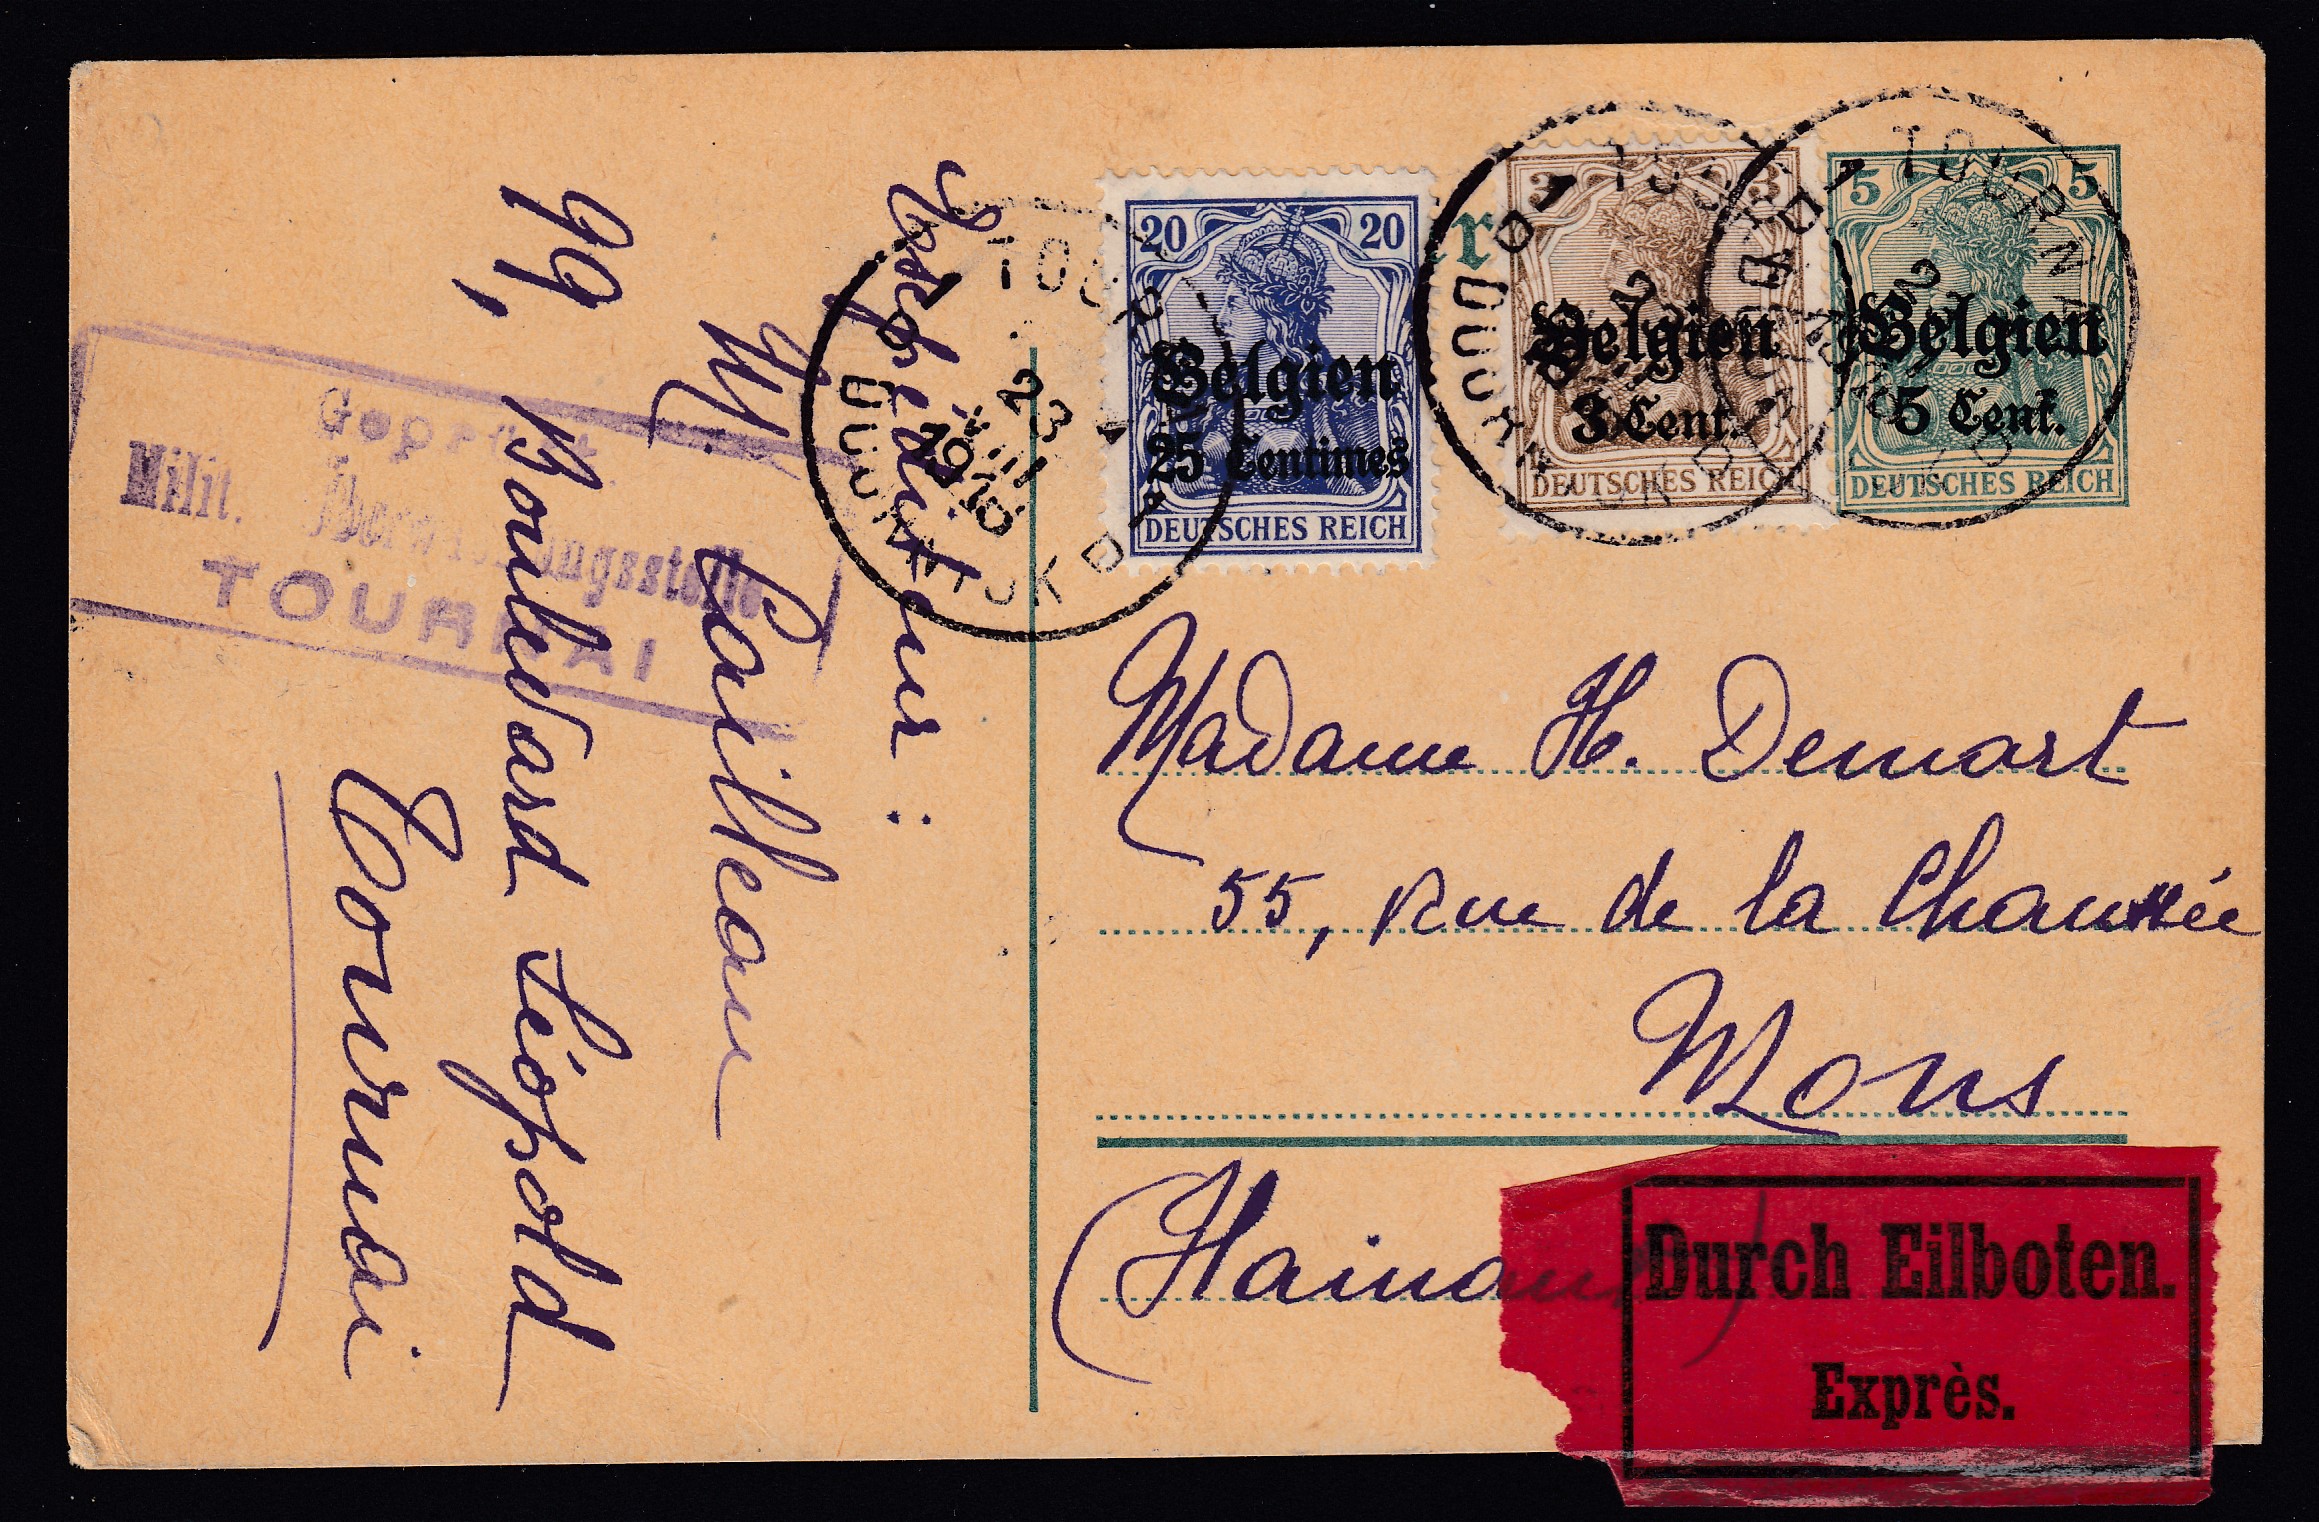 Expéditeur :
M. Cailleau
99, Boulevard Léopold
Tournai
Geprüft
Milit. Überwachungsstelle
TOURNAI
TOURNAI
23
VIII
DOORNIJK
20 20
Belgien
25 Centimes
DEUTSCHES REICH
3 3
Belgien
3 Cent.
DEUTSCHES REICH
5 5
Belgien
5 Cent.
DEUTSCHES REICH
TOURNAI
DOORNIJK
TOURNAI
Madame H. Demort
55, Rue de la Chaussée
Mons
(Hainaut)
Durch Eilboten.
Exprès.